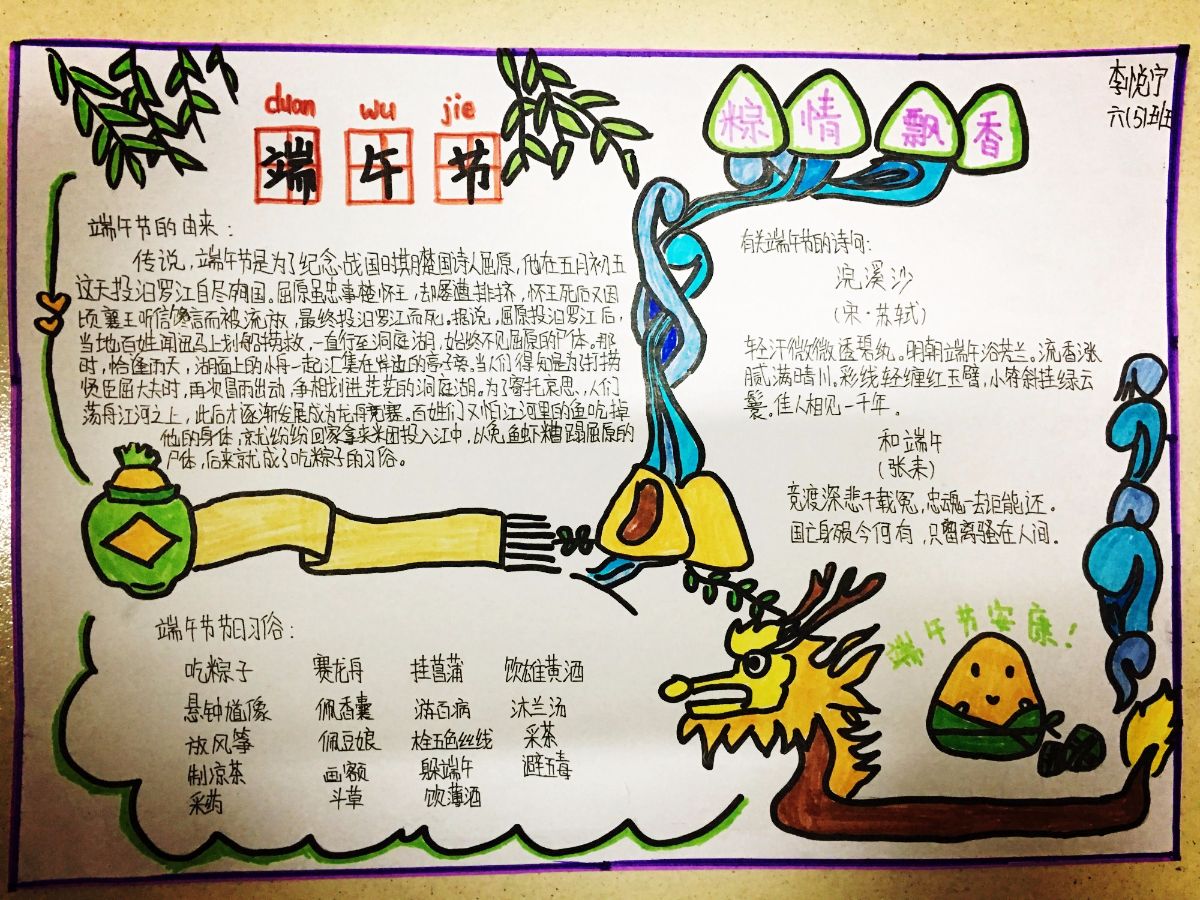 duan wu jie
端午节
粽情飘香
李悦宁
六(5)班
端午节的由来：
传说，端午节是为了纪念战国时期楚国诗人屈原，他在五月初五
这天投汨罗江自尽殉国。屈原虽忠事楚怀王，却屡遭排挤，怀王死后又因
顷襄王听信谗言而被流放，最终投汨罗江而死。据说，屈原投汨罗江后，
当地百姓闻讯马上划船捞救，一直行至洞庭湖，始终不见屈原的尸体。那
时，恰逢雨天，湖面上的小舟一起汇集在岸边的亭子旁。当人们得知是为打捞
贤臣屈大夫时，再次冒雨出动，争相划进茫茫的洞庭湖。为了寄托哀思，人们
荡舟江河之上，此后才逐渐发展成为龙舟竞赛。百姓们又怕江河里的鱼吃掉
他的身体，就纷纷回家拿来米团投入江中，以免鱼虾糟蹋屈原的
尸体，后来就成了吃粽子的习俗。
有关端午节的诗句：
浣溪沙
(宋·苏轼)
轻汗微微透碧纨。明朝端午浴芳兰。流香涨
腻满晴川。彩线轻缠红玉臂，小符斜挂绿云
鬟。佳人相见一千年。
和端午
(张耒)
竞渡深悲千载冤，忠魂一去讵能还。
国亡身殒今何有，只留离骚在人间。
端午节节日习俗：
吃粽子 赛龙舟 挂菖蒲 饮雄黄酒
悬钟馗像 佩香囊 游百病 沐兰汤
放风筝 佩豆娘 栓五色丝线 采茶
制凉茶 画额 躲端午 避五毒
采药 斗草 饮薄酒
端午节安康！